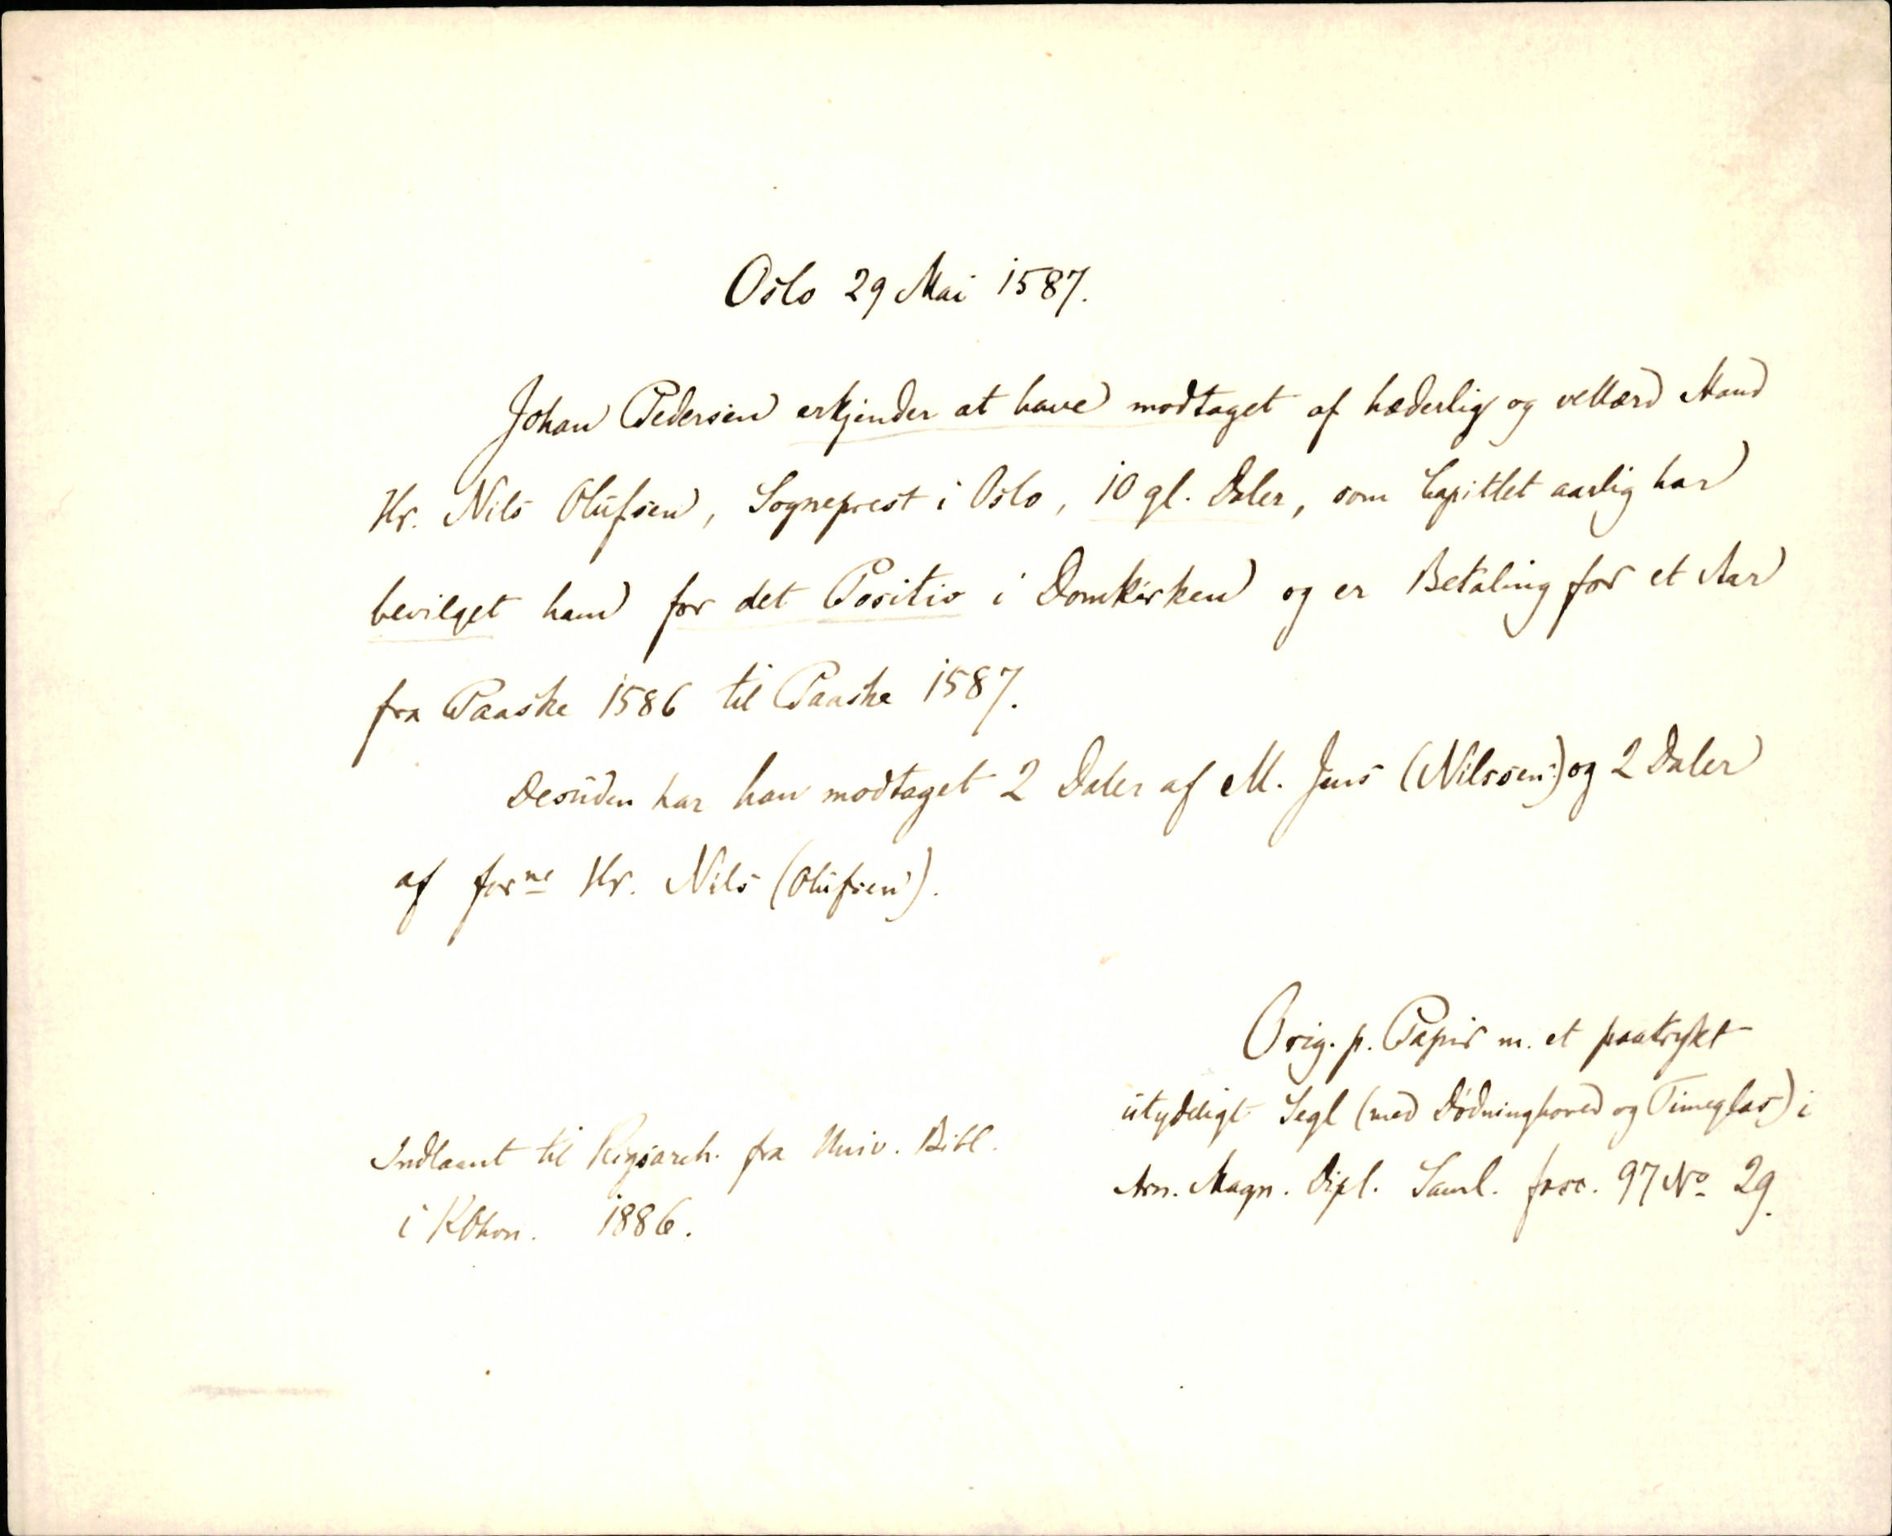 Oslo 29 Mai 1587.
Johan Pedersen erkjender at have modtaget af hæderlig og vellærd Mand
Hr. Nils Olufsen, Sogneprest i Oslo, 10 gl. Daler, som Capitlet aarlig har
bevilget ham for det Positiv i Domkirken og er Betaling for et Aar
fra Paaske 1586 til Paaske 1587.
Desuden har han modtaget 2 Daler af M. Jens (Nilssen) og 2 Daler
af forne Hr. Nils (Olufsen).
Orig. p. Papir m. et paatrykt
utydeligt Segl (med Dødninghoved og Timeglas) i
Arn. Magn. Dipl. Saml. fasc. 97 No 29.
Indlaant til Rigsarch. fra Univ. Bibl.
i Kbhvn. 1886.